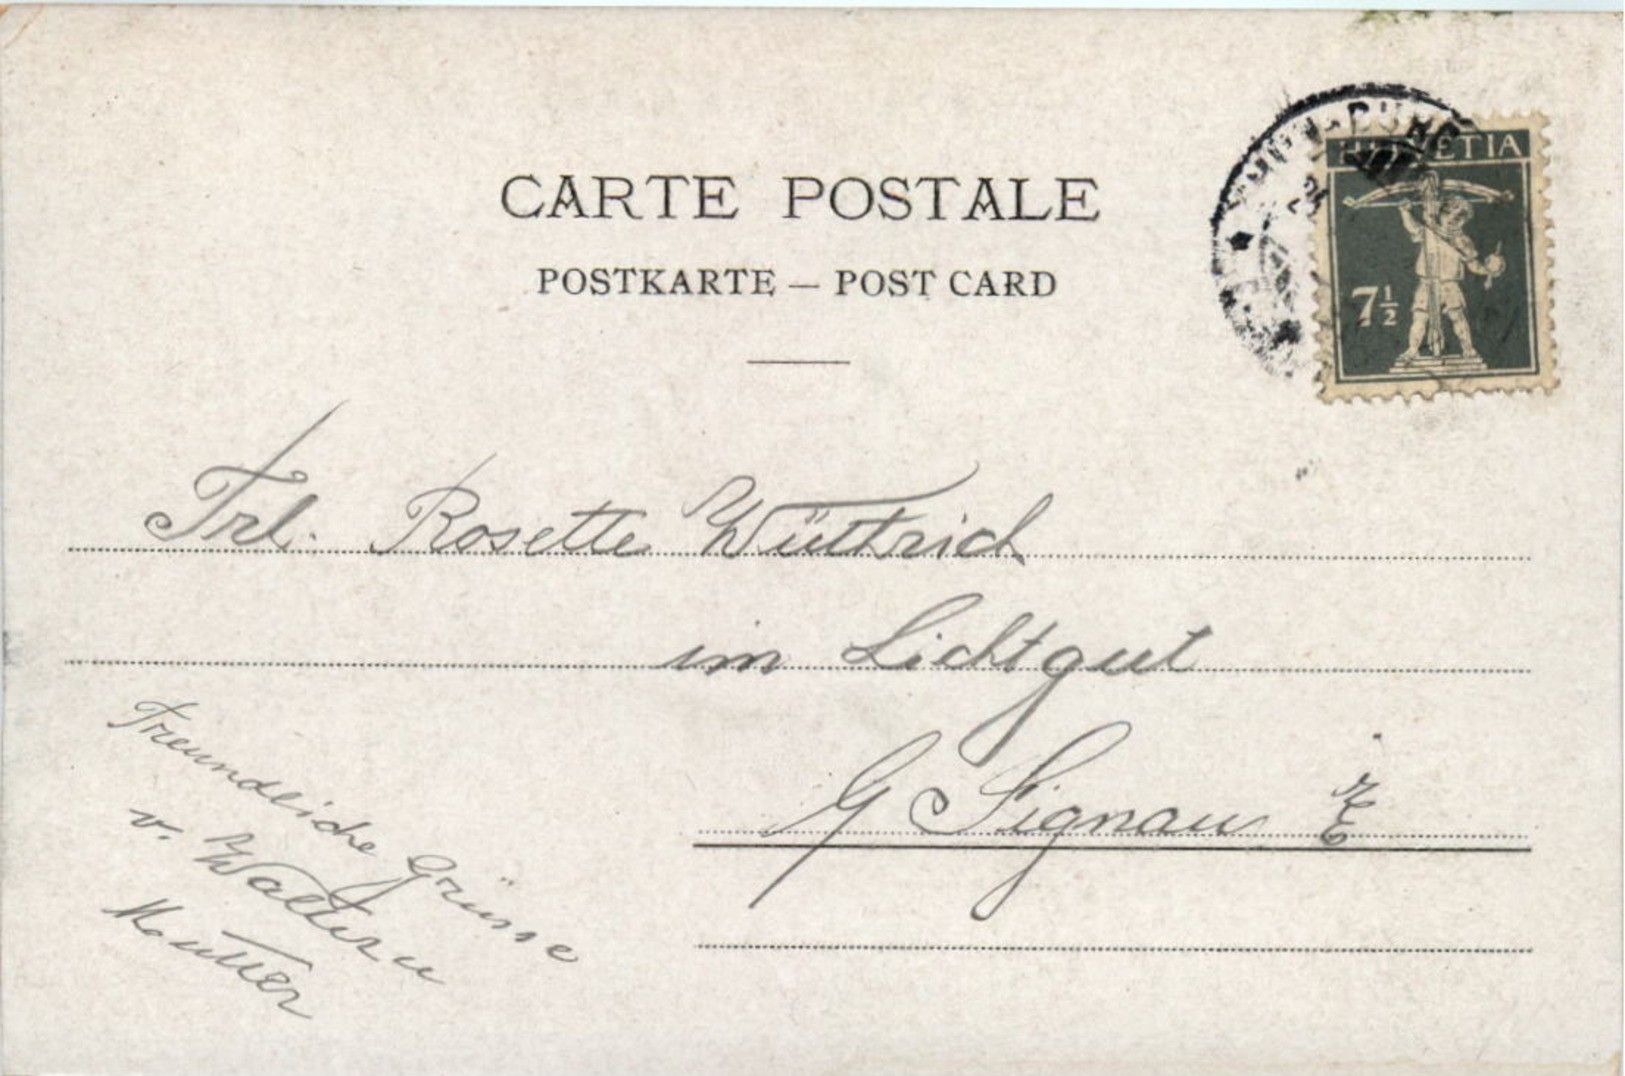 CARTE POSTALE
POSTKARTE — POST CARD
HELVETIA
7½
Frl. Rosette Wüthrich
im Lichtgut
Signau
Freundliche Grüsse
v. Walter u
Mutter